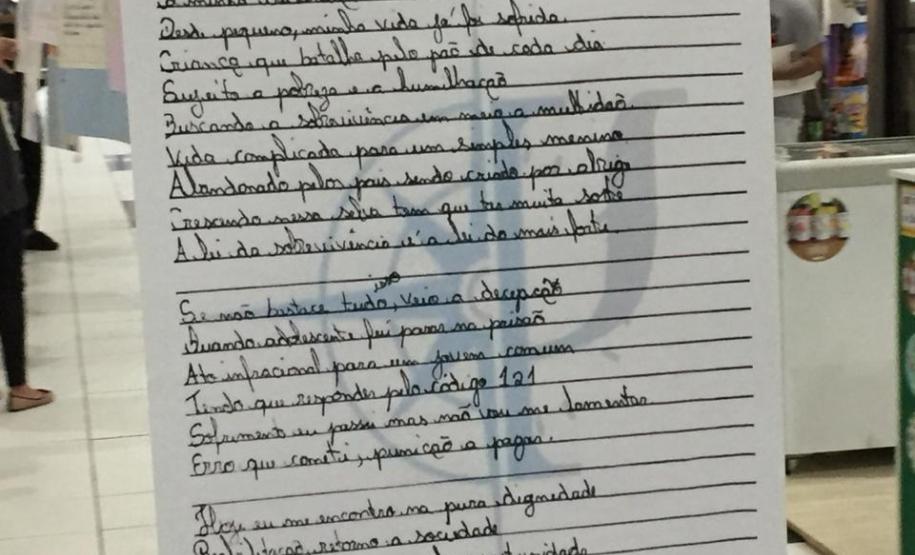 Desde pequeno, minha vida já foi sofrida.
Criança que batalha pelo pão de cada dia
Sujeito a pobreza e a humilhação
Buscando a sobrevivência em meio a multidão.
Vida complicada para um simples menino
Abandonado pelos pais sendo criado por abrigo
Crescendo nessa selva tem que ter muita sorte
A lei da sobrevivência é a lei do mais forte.
Se não bastace tudo isso, veio a decepção
Quando adolescente fui parar na prisão
Ato infracional para um jovem comum
Tendo que responder pelo código 121
Sofrimento eu passei mas não vou me lamentar
Erro que cometi, punição a pagar.
Hoje eu me encontro na pura dignedade
retorno a sociedade